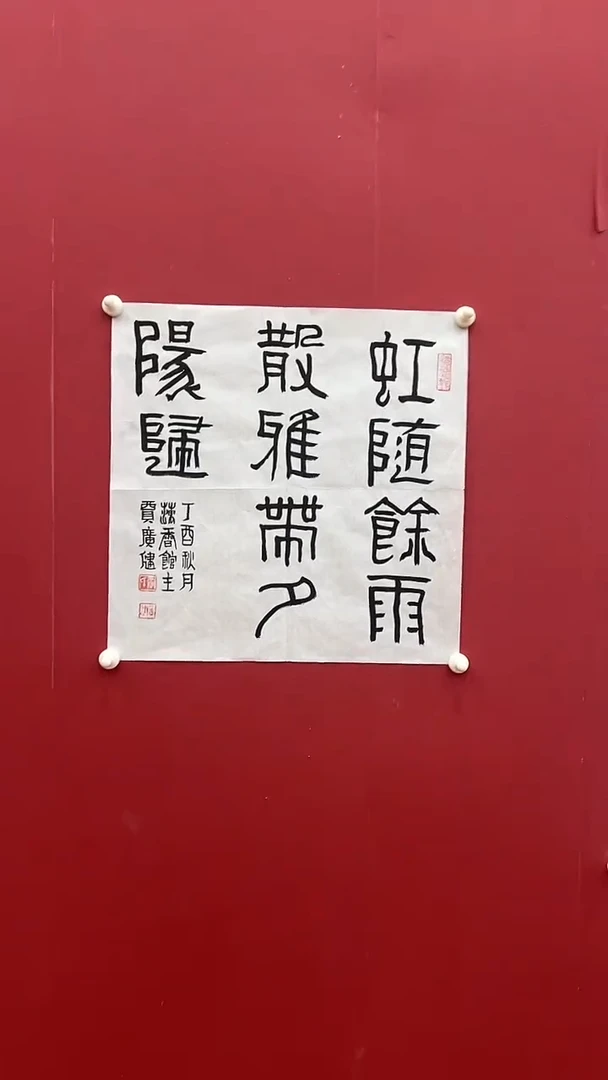 虹随餘雨
散雅帶夕
陽歸
丁酉秋月
莯香館主
賈廣健